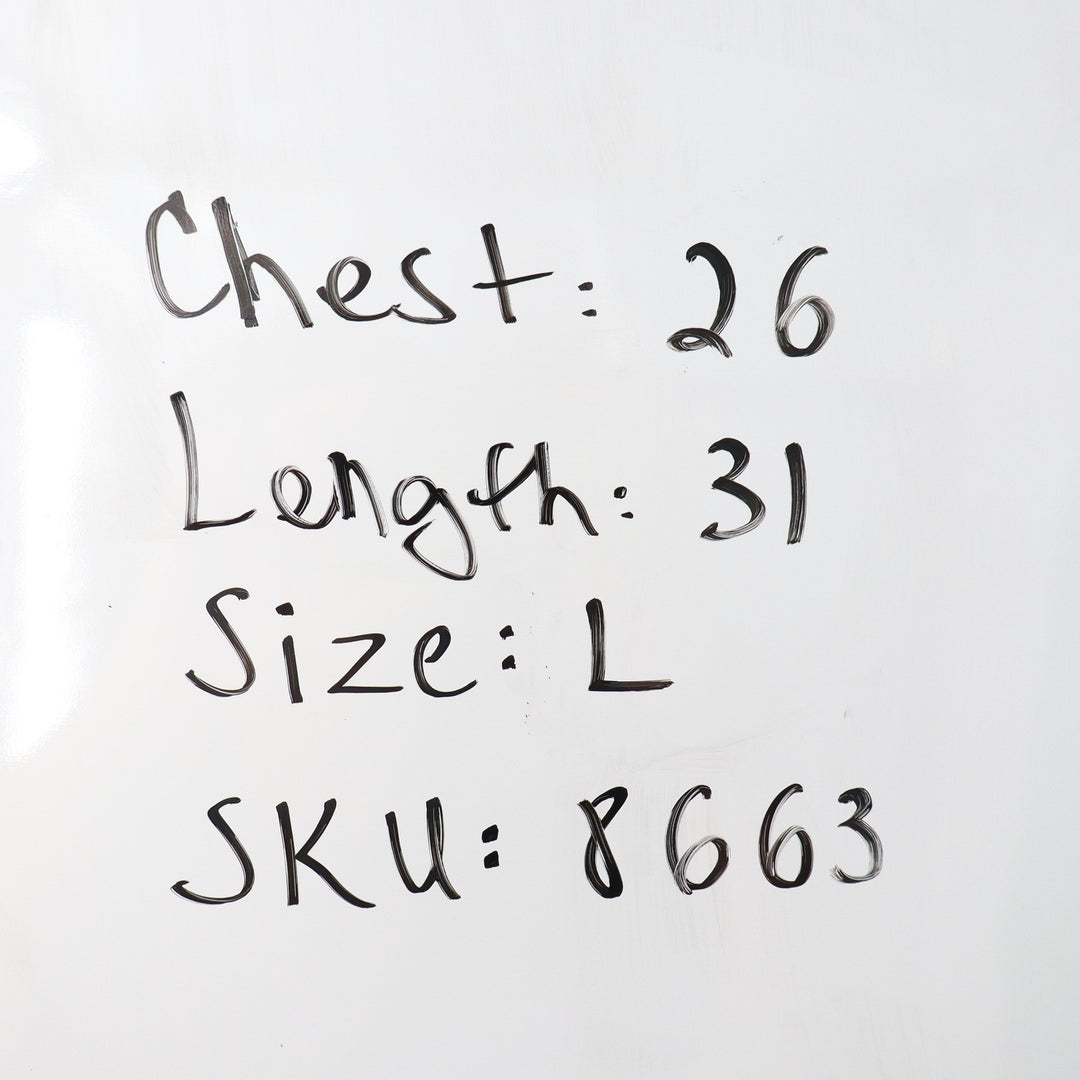 Chest: 26
Length: 31
Size: L
SKU: 8663